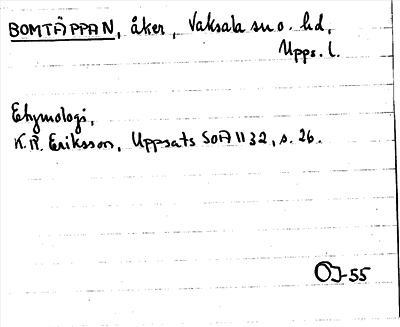 BOMTÄPPAN, åker, Vaksala sn o. hd,
Upps. l.
Etymologi,
K. Å. Eriksson, Uppsats SOÄ 1132, s. 26.
ÖJ-55